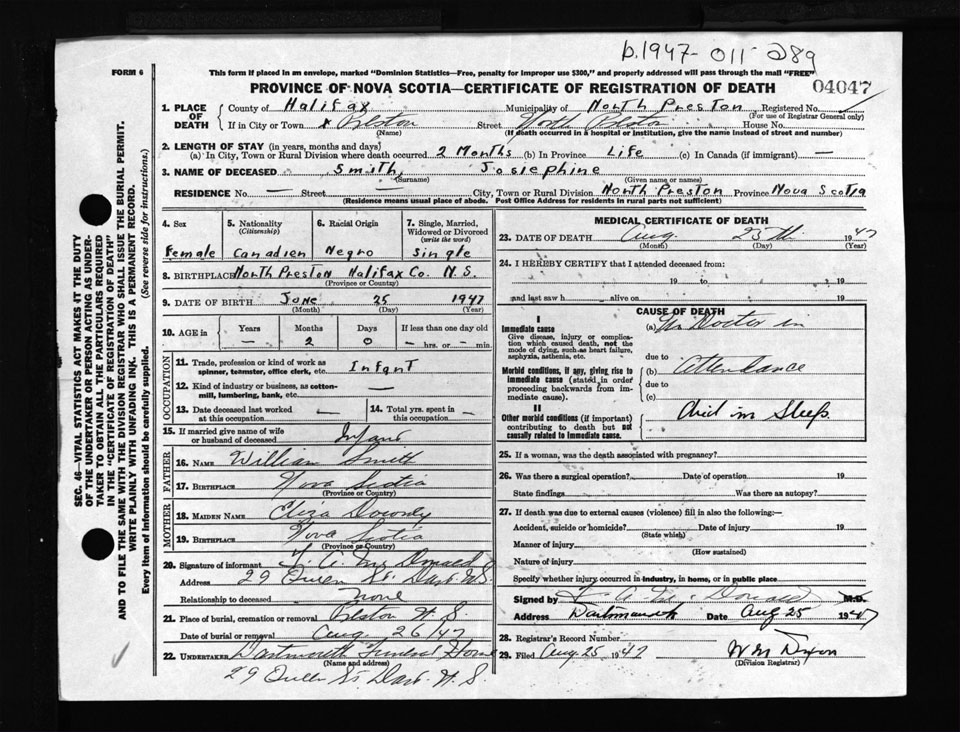 b.1947- 011 289
FORM 6
This form if placed in an envelope, marked "Dominion Statistics—Free, penalty for improper use $300," and properly addressed will pass through the mail "FREE"
PROVINCE OF NOVA SCOTIA—CERTIFICATE OF REGISTRATION OF DEATH 04047
1. PLACE OF DEATH County of Halifax Municipality of North Preston Registered No.
(For use of Registrar General only)
If in City or Town Preston Street North Preston House No.
(Name) (If death occurred in a hospital or institution, give the name instead of street and number)
2. LENGTH OF STAY (in years, months and days)
(a) In City, Town or Rural Division where death occurred 2 Months (b) In Province Life (c) In Canada (if immigrant) —
3. NAME OF DECEASED Smith, Josiephine
(Surname) (Given name or names)
RESIDENCE No. — Street — City, Town or Rural Division North Preston Province Nova Scotia
(Residence means usual place of abode. Post Office Address for residents in rural parts not sufficient)
4. Sex 5. Nationality (Citizenship) 6. Racial Origin 7. Single, Married, Widowed or Divorced (write the word)
Female Canadien Negro Single
8. BIRTHPLACE North Preston Halifax Co. N.S.
(Province or Country)
9. DATE OF BIRTH June 25 1947
(Month) (Day) (Year)
10. AGE in Years Months Days If less than one day old
— 2 0 — hrs. or — min.
OCCUPATION
11. Trade, profession or kind of work as spinner, teamster, office clerk, etc. Infant
12. Kind of industry or business, as cotton-mill, lumbering, bank, etc. —
13. Date deceased last worked at this occupation — 14. Total yrs. spent in this occupation —
15. If married give name of wife or husband of deceased Infant
FATHER
16. NAME William Smith
17. BIRTHPLACE Nova Scotia
(Province or Country)
MOTHER
18. MAIDEN NAME Eliza
19. BIRTHPLACE Nova Scotia
(Province or Country)
20. Signature of informant A. McDonald
Address 29 Queen St. Dart N.S.
Relationship to deceased None
21. Place of burial, cremation or removal Preston N.S.
Date of burial or removal Aug 26/47
22. UNDERTAKER Dartmouth Funeral Home
(Name and address)
29 Queen St. Dart. N.S
MEDICAL CERTIFICATE OF DEATH
23. DATE OF DEATH Aug. 25th 1947
(Month) (Day) (Year)
24. I HEREBY CERTIFY that I attended deceased from:
19 to 19
and last saw h alive on 19
CAUSE OF DEATH
I
Immediate cause (a) No Doctor in
Give disease, injury or complication which caused death, not the mode of dying, such as heart failure, asphyxia, asthenia, etc.
due to
Morbid conditions, if any, giving rise to immediate cause (stated in order proceeding backwards from immediate cause). (b) Attendance
due to
(c)
II
Other morbid conditions (if important) contributing to death but not causally related to immediate cause. Died in Sleep
25. If a woman, was the death associated with pregnancy?
26. Was there a surgical operation? Date of operation 19
State findings Was there an autopsy?
27. If death was due to external causes (violence) fill in also the following:—
Accident, suicide or homicide? Date of injury 19
(State which)
Manner of injury
(How sustained)
Nature of injury
Specify whether injury occurred in industry, in home, or in public place
Signed by A. McDonald M.D.
Address Dartmouth Date Aug 25 1947
28. Registrar's Record Number
29. Filed Aug. 25, 1947 W M Dixon
(Division Registrar)
SEC. 46—VITAL STATISTICS ACT MAKES IT THE DUTY
OF THE UNDERTAKER OR PERSON ACTING AS UNDER-
TAKER TO OBTAIN ALL THE PARTICULARS REQUIRED
IN THE "CERTIFICATE OF REGISTRATION OF DEATH"
AND TO FILE THE SAME WITH THE DIVISION REGISTRAR WHO SHALL ISSUE THE BURIAL PERMIT.
WRITE PLAINLY WITH UNFADING INK. THIS IS A PERMANENT RECORD.
Every item of information should be carefully supplied. (See reverse side for instructions.)